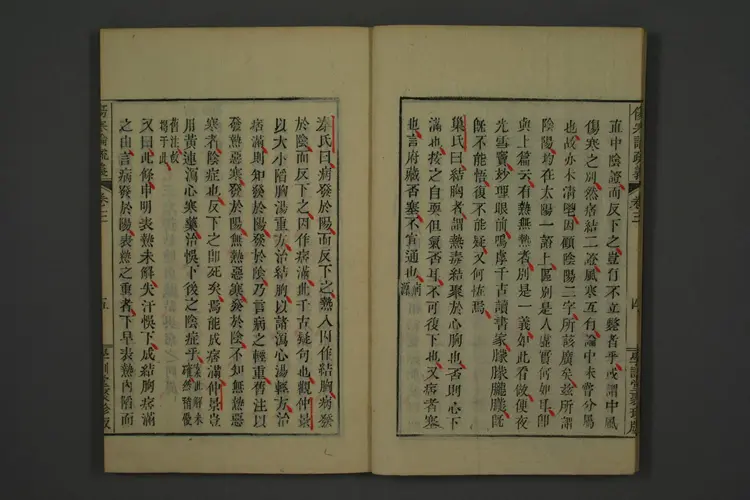 傷寒論疏義
卷三
四
學訓堂聚珍版
直中陰證而反下之豈有不立斃者乎或謂中風
傷寒之別然痞結二證風寒互有論中未嘗分屬
也故亦未清因顧陰陽二字所該廣矣茲所謂
陰陽均在太陽一證上區別是人虛實何如耳卽
與上篇云有熱無熱者別是一義如此看做便夜
光雪竇妙理眼前嗚虖千古讀書家朦朦朧朧
旣不能悟復不能疑又何怪焉
巢氏曰結胸者謂熱毒結聚於心胸也否則心下
滿也按之自耎但氣否耳不可復下也又痞者塞
也言府藏否塞不宣通也病源
秦氏曰病發於陽而反下之熱入因作結胸病發
於陰而反下之因作痞滿此千古疑句也觀仲景
以大小陷胸湯重方治結胸以諸瀉心湯輕方治
痞滿則知發於陽發於陰乃言病之輕重舊注以
發熱惡寒發於陽無熱惡寒發於陰不知無熱惡
寒者陰症也反下之卽死矣焉能成痞滿仲景豈
用黃連瀉心寒藥治悞下後之陰症乎按此解未確然稍優
舊注故揭于此
又曰此條申明表熱未解失汗悞下成結胸痞滿
之由言病發於陽表熱之重者下早表熱內陷而
傷寒論疏義
卷三
五
學訓堂聚珍版